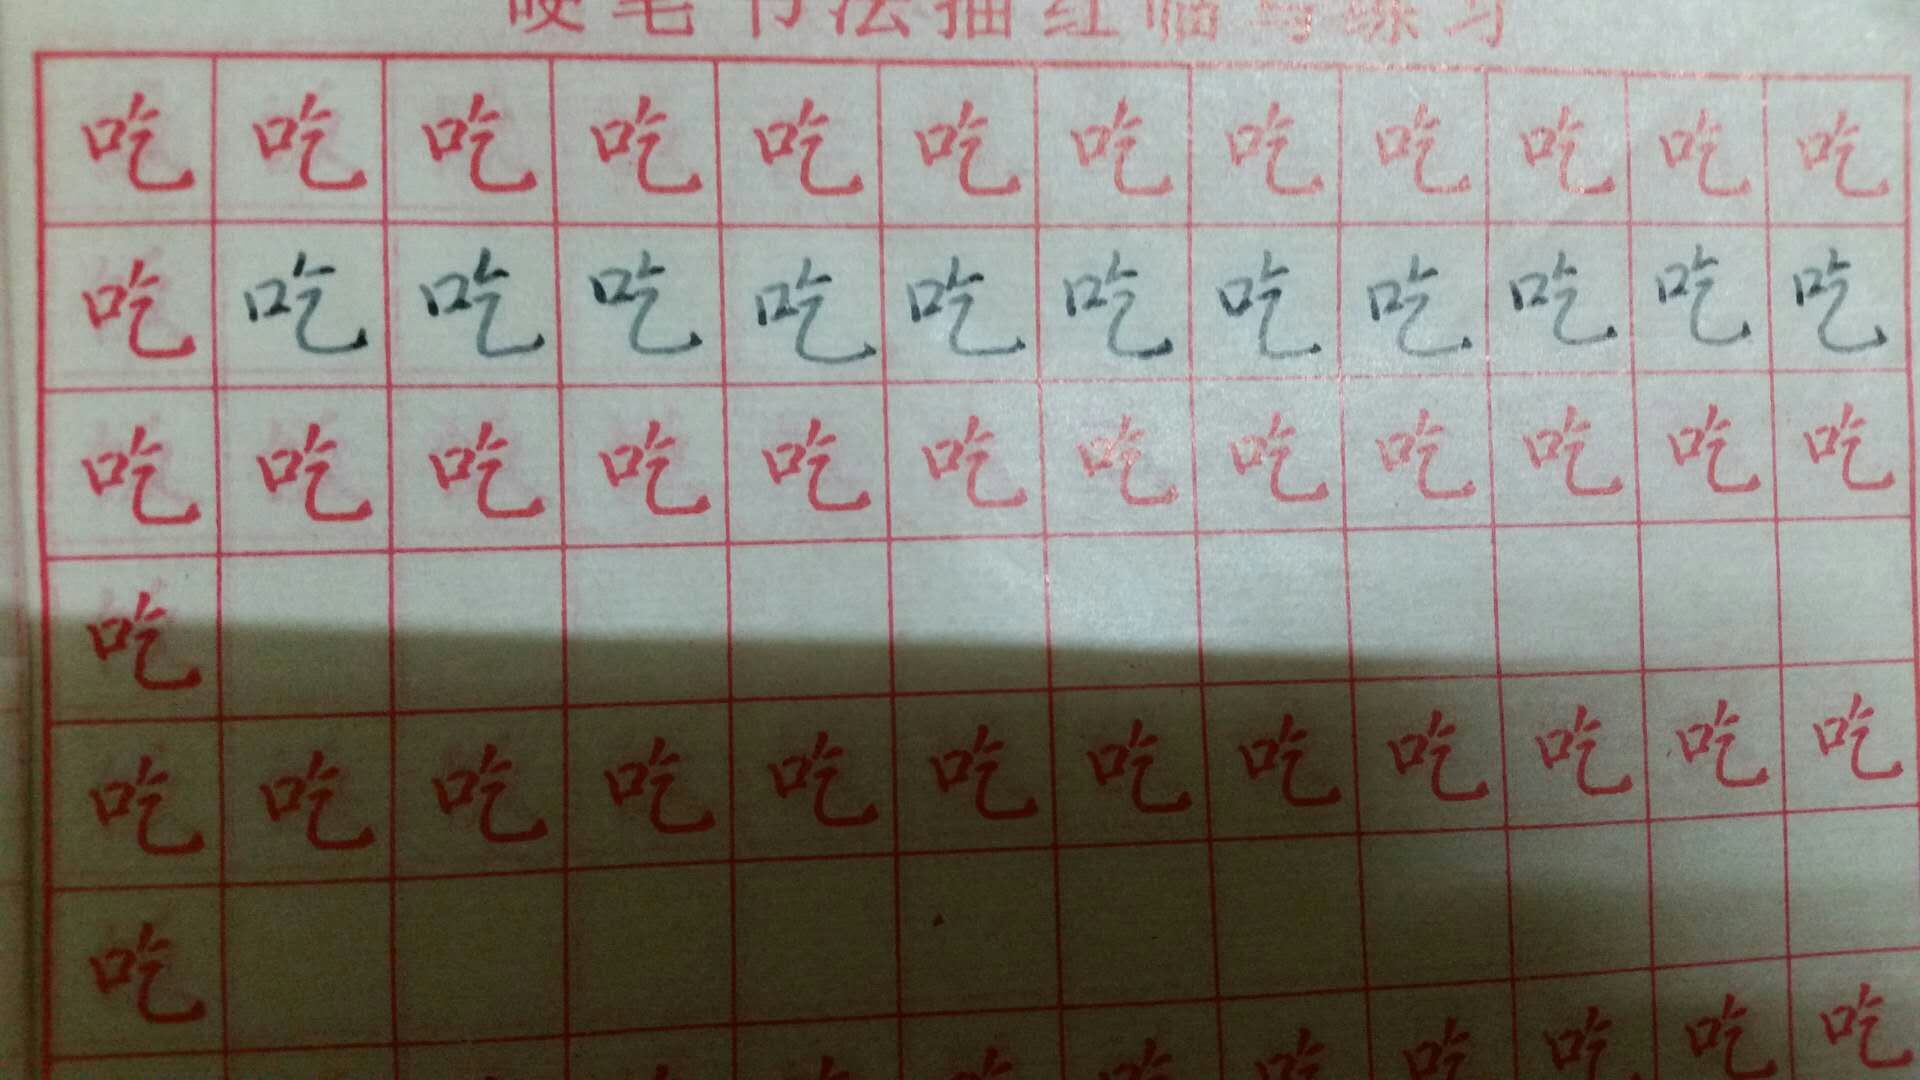 硬笔书法描红临写练习
吃吃吃吃吃吃吃吃吃吃吃吃
吃吃吃吃吃吃吃吃吃吃吃吃
吃吃吃吃吃吃吃吃吃吃吃吃
吃
吃吃吃吃吃吃吃吃吃吃吃吃
吃
吃吃吃吃吃